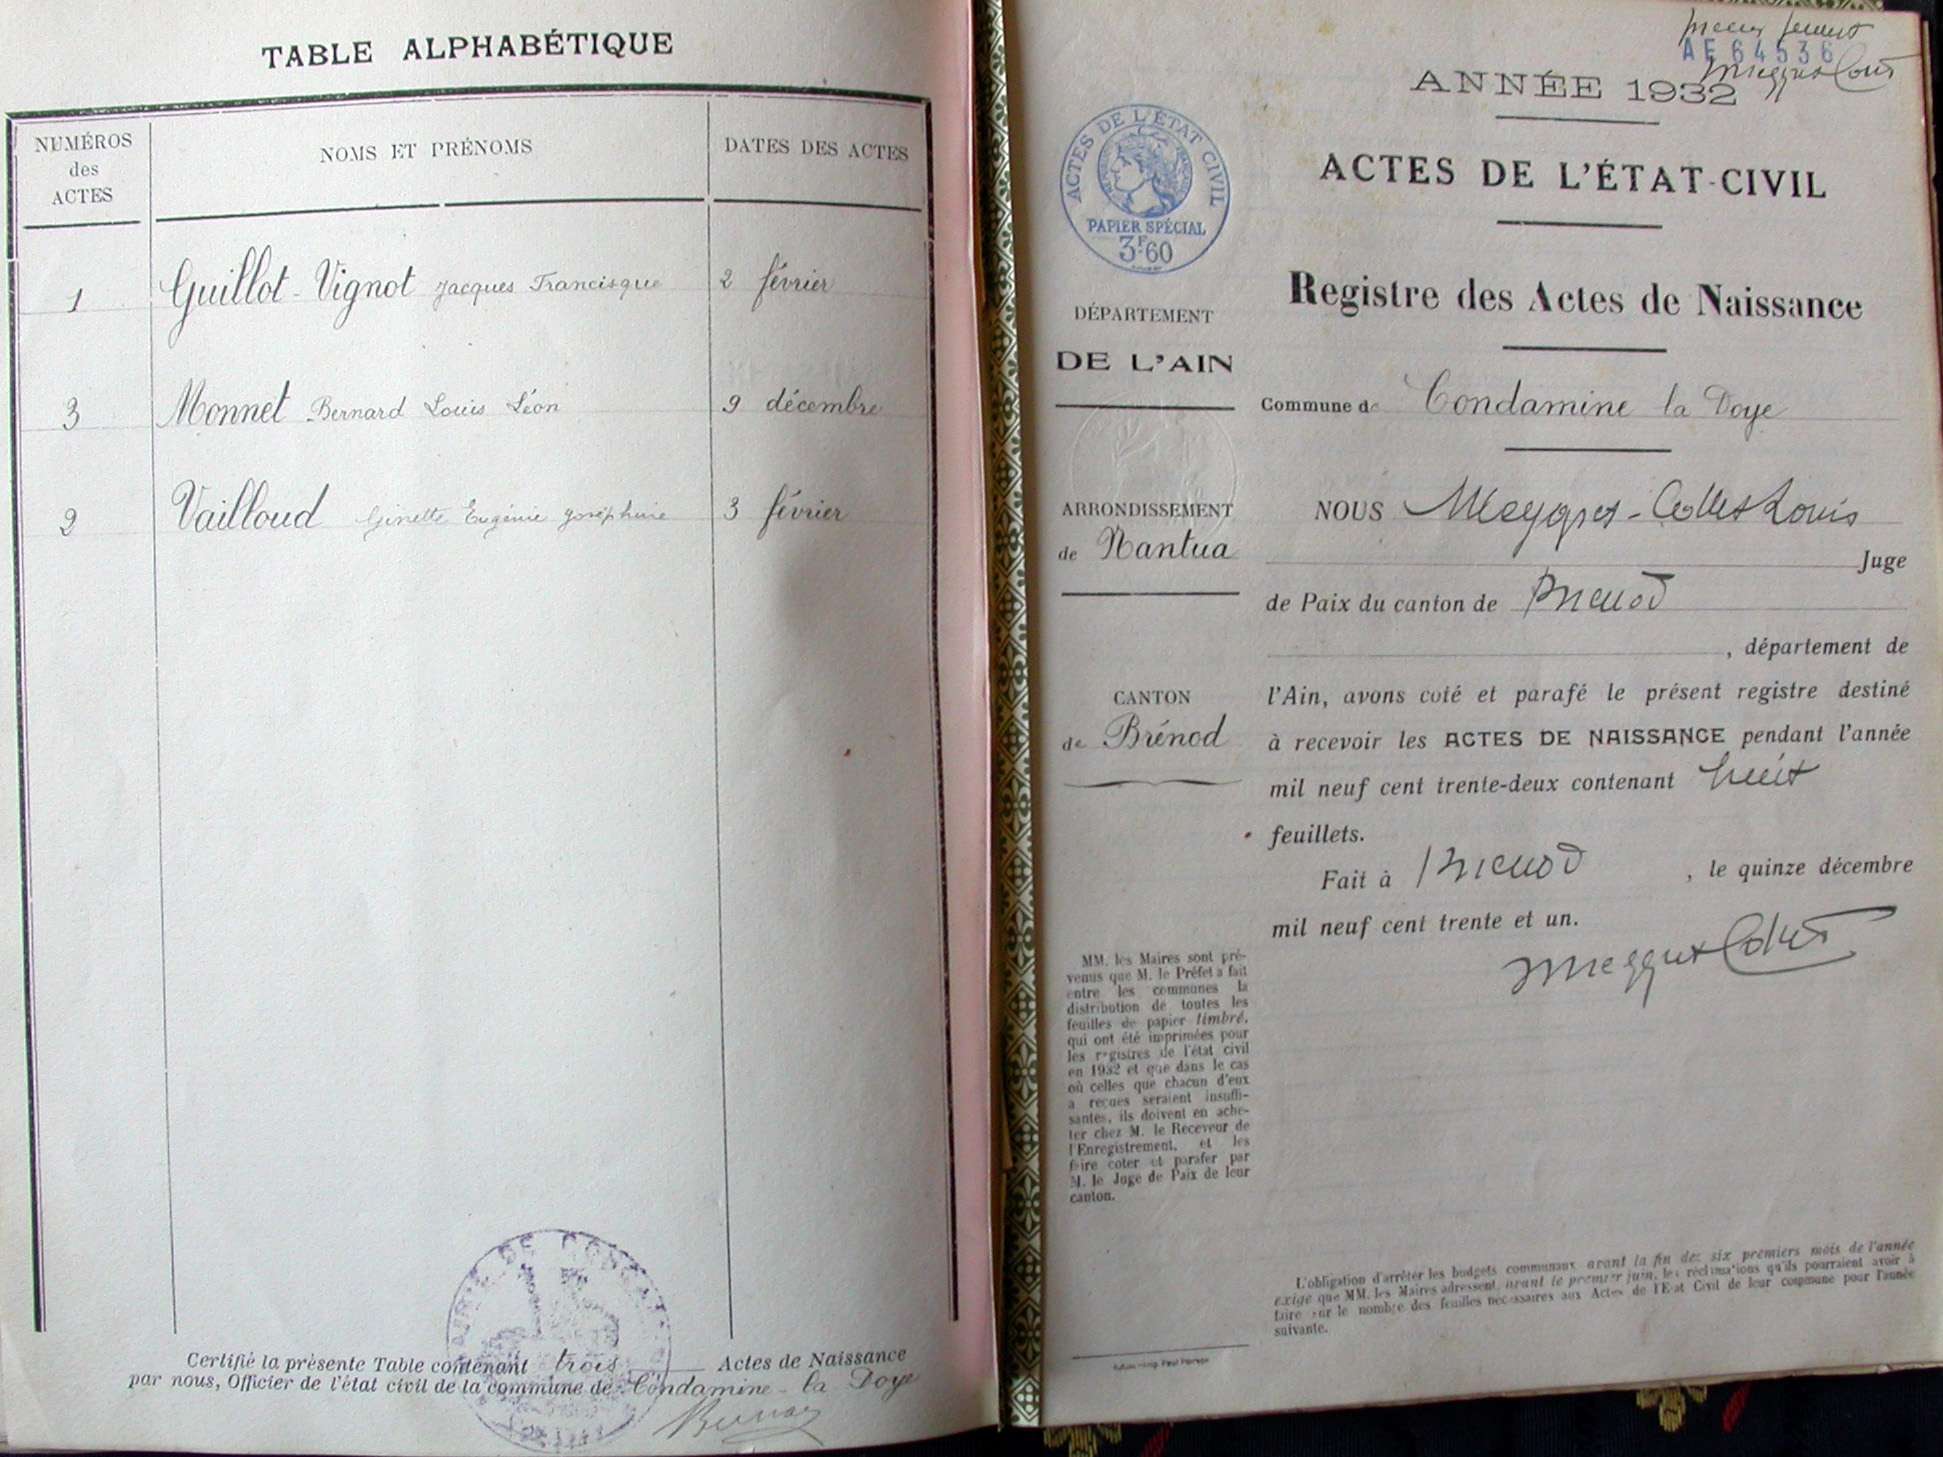 TABLE ALPHABÉTIQUE
NUMÉROS
des
ACTES
NOMS ET PRÉNOMS
DATES DES ACTES
1 Guillot-Vignot Jacques Francisque 2 février
3 Monnet Bernard Louis Léon 9 décembre
2 Vailloud Ginette Eugénie Joséphine 3 février
Certifié la présente Table contenant trois Actes de Naissance
par nous, Officier de l'état civil de la commune de Condamine-la Doye
AE 64536
ANNÉE 1932
ACTES DE L'ÉTAT CIVIL
PAPIER SPÉCIAL
3F60
ACTES DE L'ÉTAT-CIVIL
Registre des Actes de Naissance
DÉPARTEMENT
DE L'AIN
Commune de Condamine la Doye
ARRONDISSEMENT
de Nantua
CANTON
de Brénod
NOUS Meygret-Collet Louis
Juge
de Paix du canton de Brénod
, département de
l'Ain, avons coté et parafé le présent registre destiné
à recevoir les ACTES DE NAISSANCE pendant l'année
mil neuf cent trente-deux contenant huit
feuillets.
Fait à Brénod, le quinze décembre
mil neuf cent trente et un.
Meygret Collet
MM. les Maires sont pré-
venus que M. le Préfet a fait
entre les communes la
distribution de toutes les
feuilles de papier timbré,
qui ont été imprimées pour
les registres de l'état civil
en 1932 et que dans le cas
où celles que chacun d'eux
a reçues seraient insuffi-
santes, ils doivent en ache-
ter chez M. le Receveur de
l'Enregistrement, et les
faire coter et parafer par
M. le Juge de Paix de leur
canton.
L'obligation d'arrêter les budgets communaux avant la fin des six premiers mois de l'année
exige que MM. les Maires adressent, avant le premier juin, les réclamations qu'ils pourraient avoir à
faire sur le nombre des feuilles nécessaires aux Actes de l'Etat Civil de leur commune pour l'année
suivante.